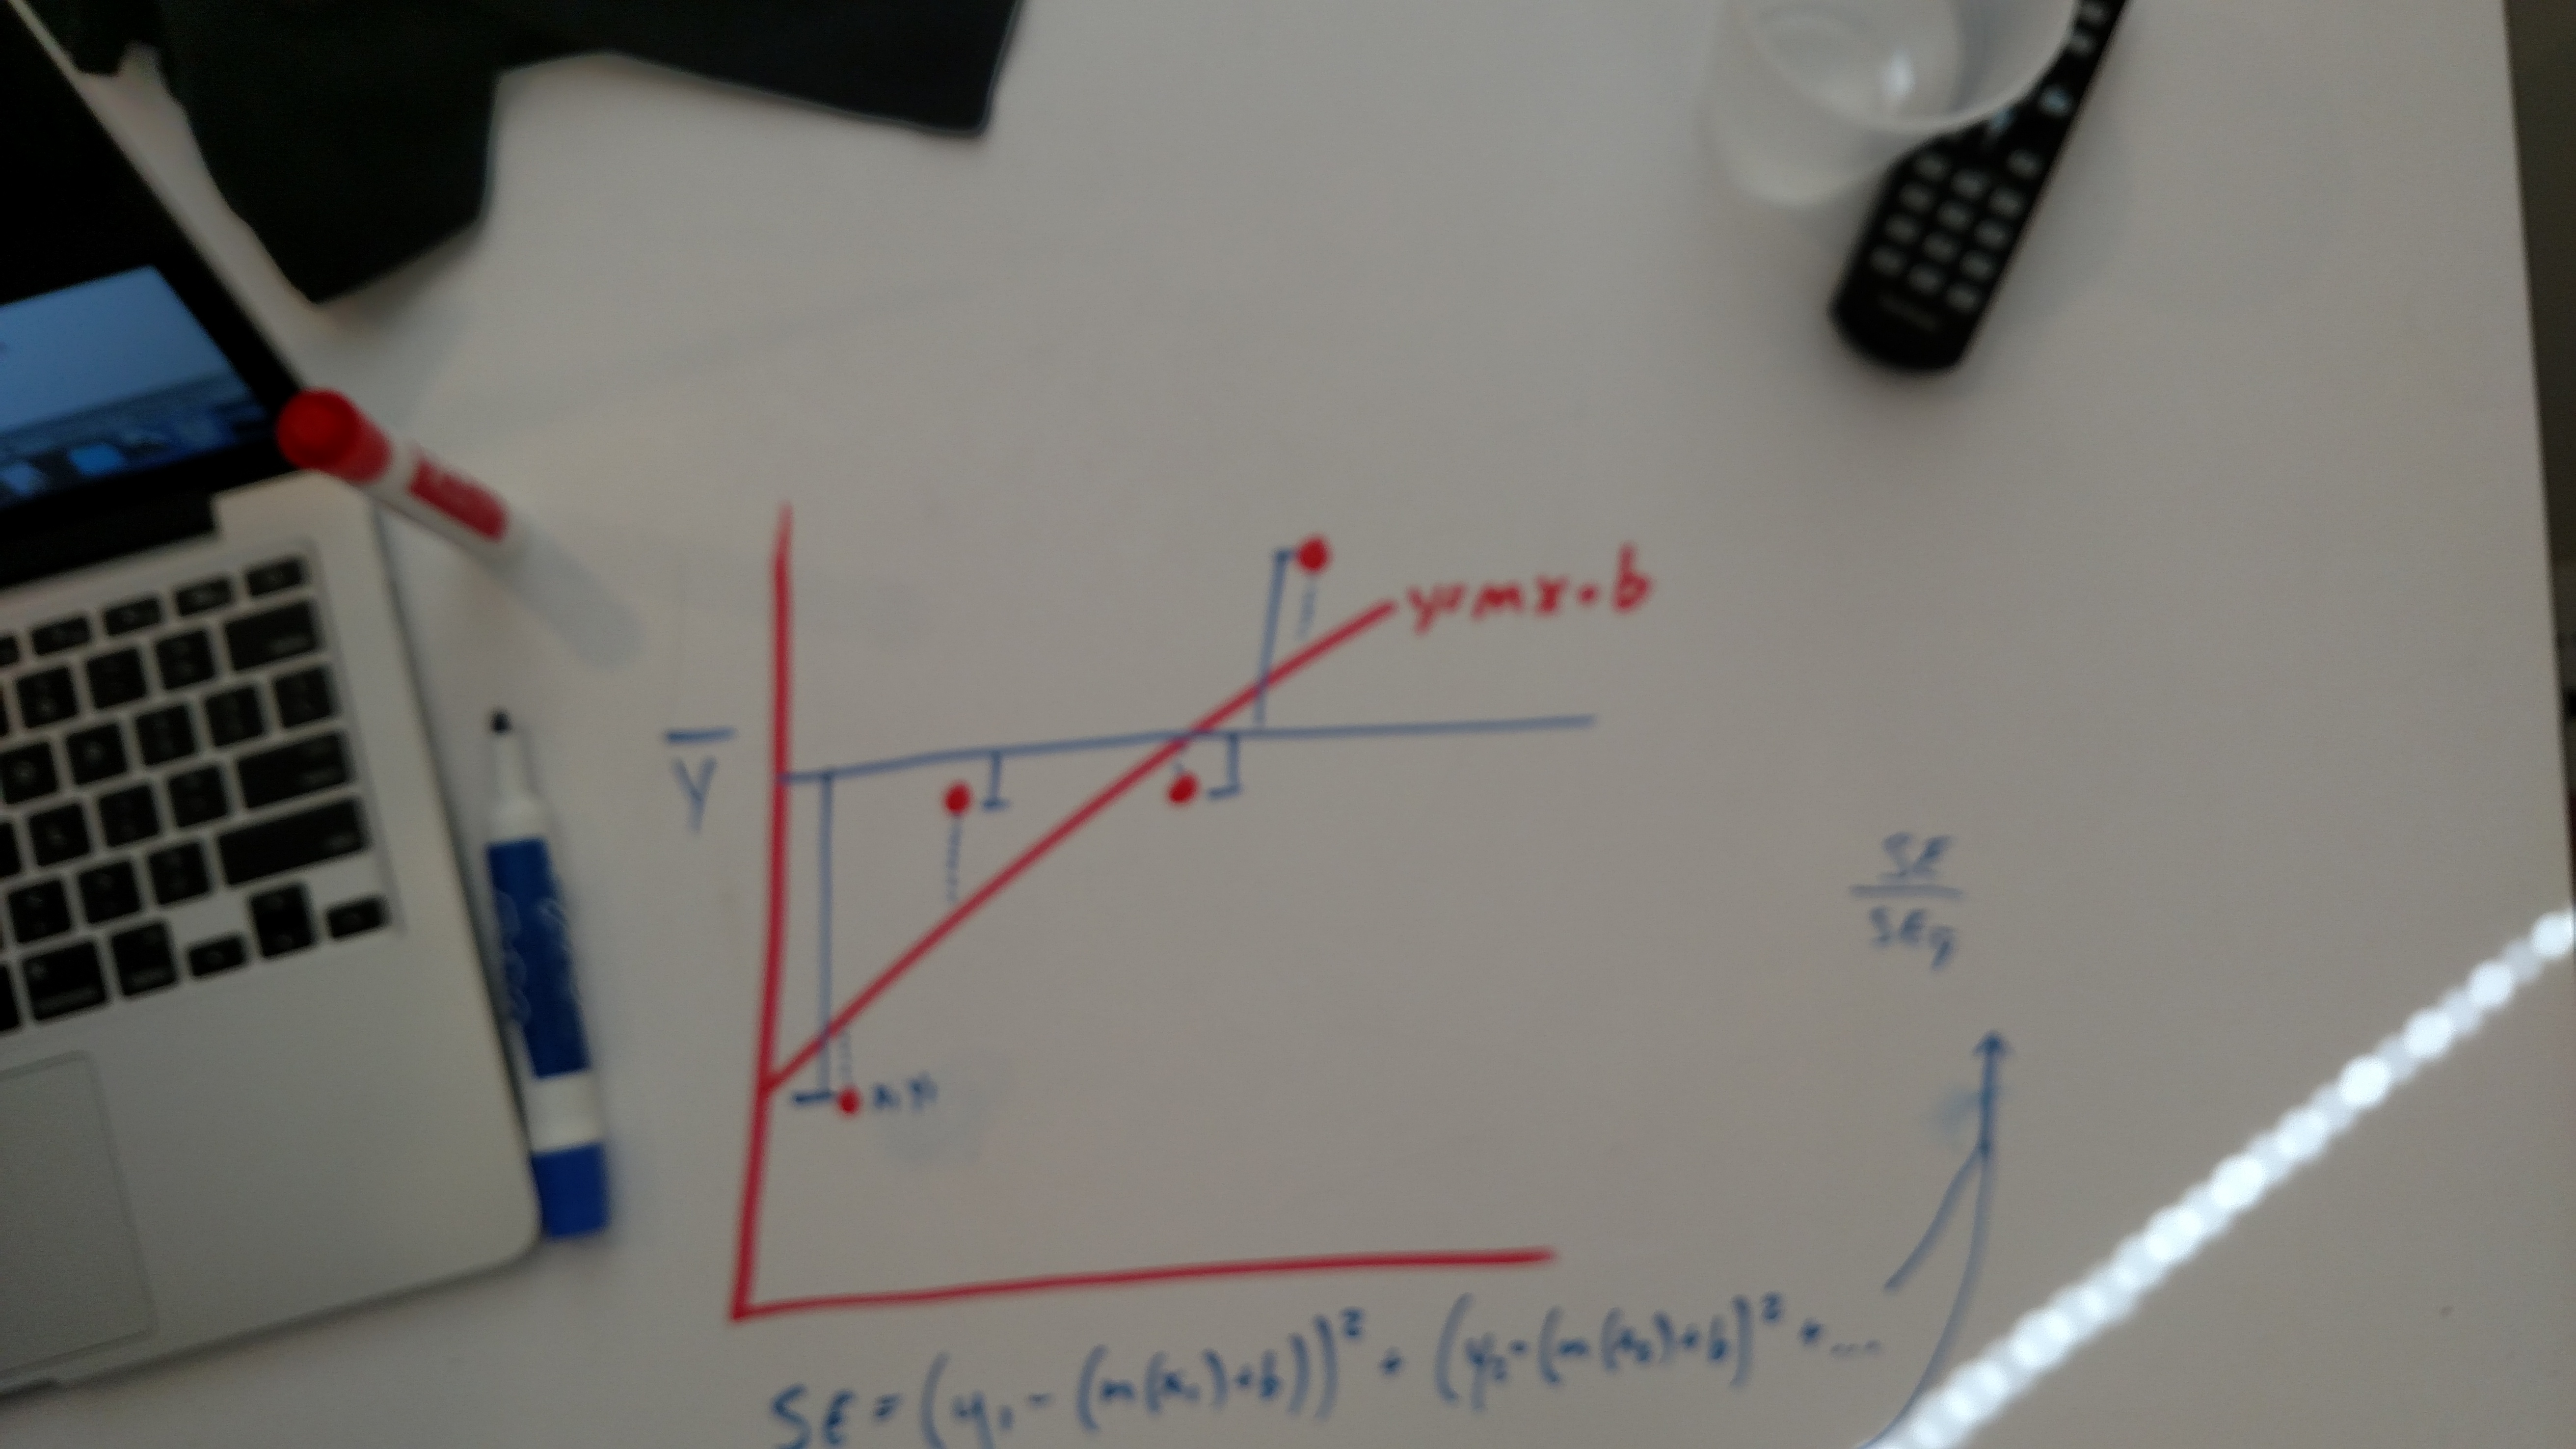 y=mx+b
Y̅
x₁ y₁
SE
SEy̅
SE = (y₁ - (m(x₁)+b))² + (y₂-(m(x₂)+b)² + ...